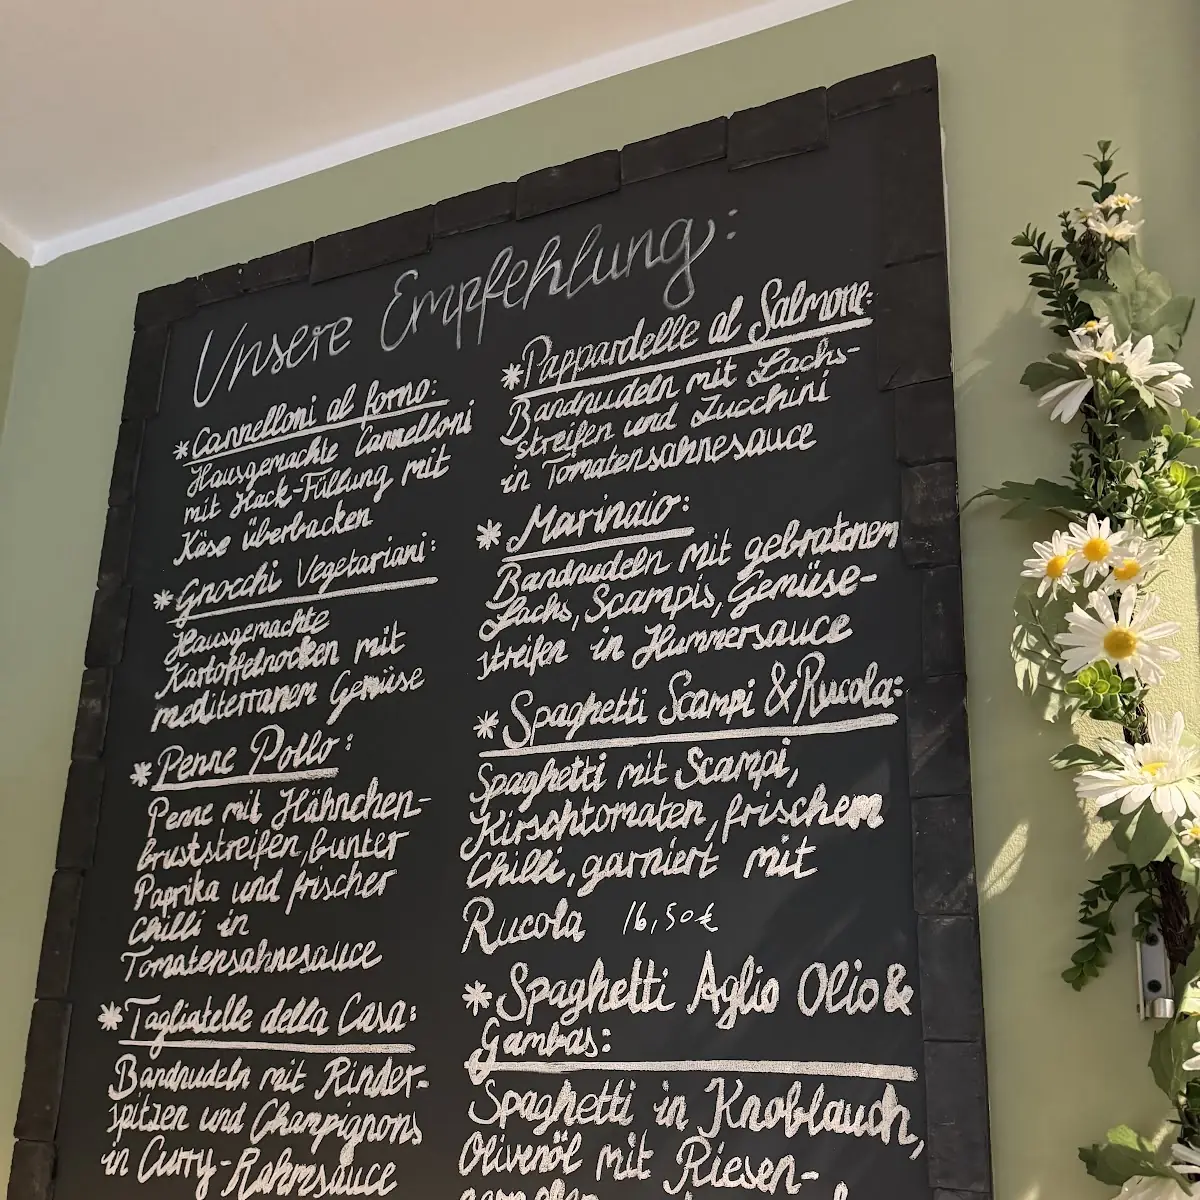 Unsere Empfehlung:
*Cannelloni al forno:
Hausgemachte Cannelloni
mit Hack-Füllung mit
Käse überbacken
*Gnocchi Vegetariani:
Hausgemachte
Kartoffelnocken mit
mediterranem Gemüse
*Penne Pollo:
Penne mit Hähnchen-
bruststreifen, bunter
Paprika und frischer
Chilli in
Tomatensahnesauce
*Tagliatelle della Casa:
Bandnudeln mit Rinder-
spitzen und Champignons
in Curry-Rahmsauce
*Pappardelle al Salmone:
Bandnudeln mit Lachs-
streifen und Zucchini
in Tomatensahnesauce
*Marinaio:
Bandnudeln mit gebratenem
Lachs, Scampis, Gemüse-
streifen in Hummersauce
*Spaghetti Scampi & Rucola:
Spaghetti mit Scampi,
Kirschtomaten, frischem
Chilli, garniert mit
Rucola 16,50€
*Spaghetti Aglio Olio &
Gambas:
Spaghetti in Knoblauch,
Olivenöl mit Riesen-